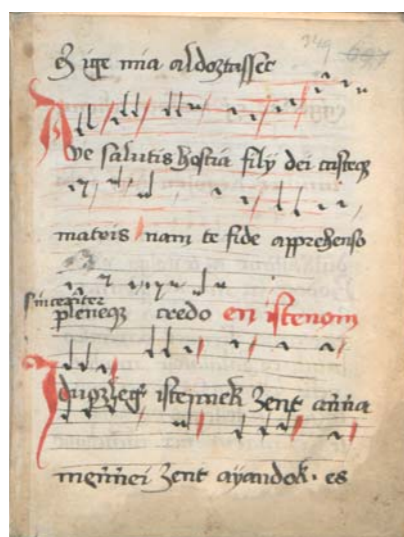 Ez ige mia aldoztassec
Ave salutis hostia filij dei tristeqz
matris nam te fide apprehenso
sinceriter
pleneqz credo en istenom
Iduezleg' istennek zent ańńa
meńńei zent ayandok · es